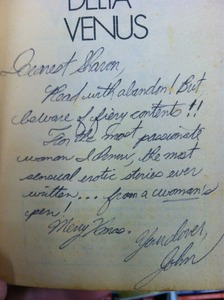 DELTA
VENUS
Dearest Sharon,
Read with abandon! But
beware of fiery contents!!
For the most passionate
woman I know, the most
sensual erotic stories ever
written... from a woman's
pen!
Merry Xmas.
Your lover,
John